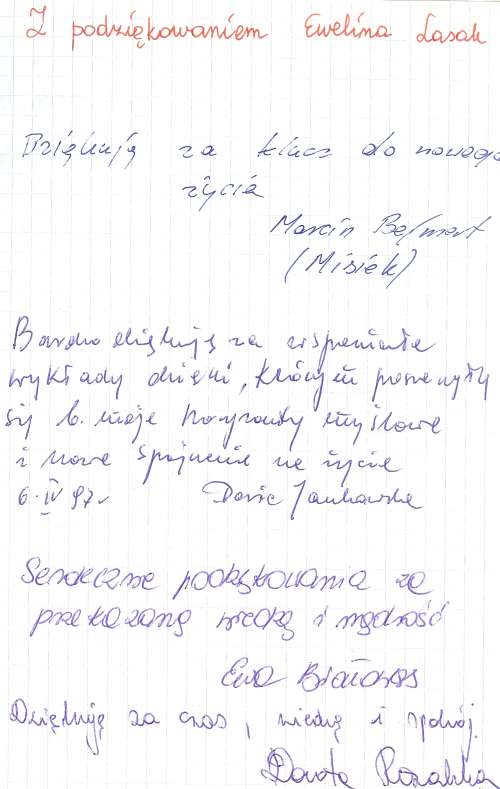 Z podziękowaniem Ewelina Lasak
Dziękuję za klucz do nowego
życia
Marcin
(Misiek)
Bardzo dziękuję za wspaniałe
wykłady dzięki, którym poszerzyły
się b. moje horyzonty myślowe
i nowe spojrzenie na życie
6.IV 97r Daria Jankowska
Serdeczne podziękowania za
przekazaną wiedzę i mądrość
Ewa Białowąs
Dziękuję za czas, wiedzę i spokój.
Dorota